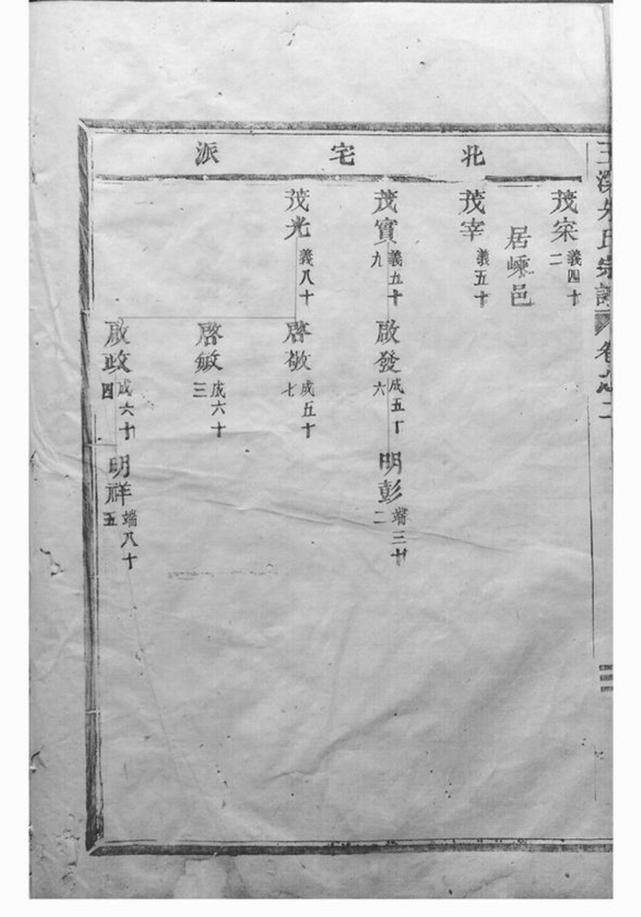 北宅派
茂寀義四十二
居嵊邑
茂宰義五十
茂實義五十九
啟發成五十六
明彭端三十二
茂光義八十
啓敏成五十七
啓敏成六十三
啟政成六十四
明祥端八十五
氏宗譜
卷之二